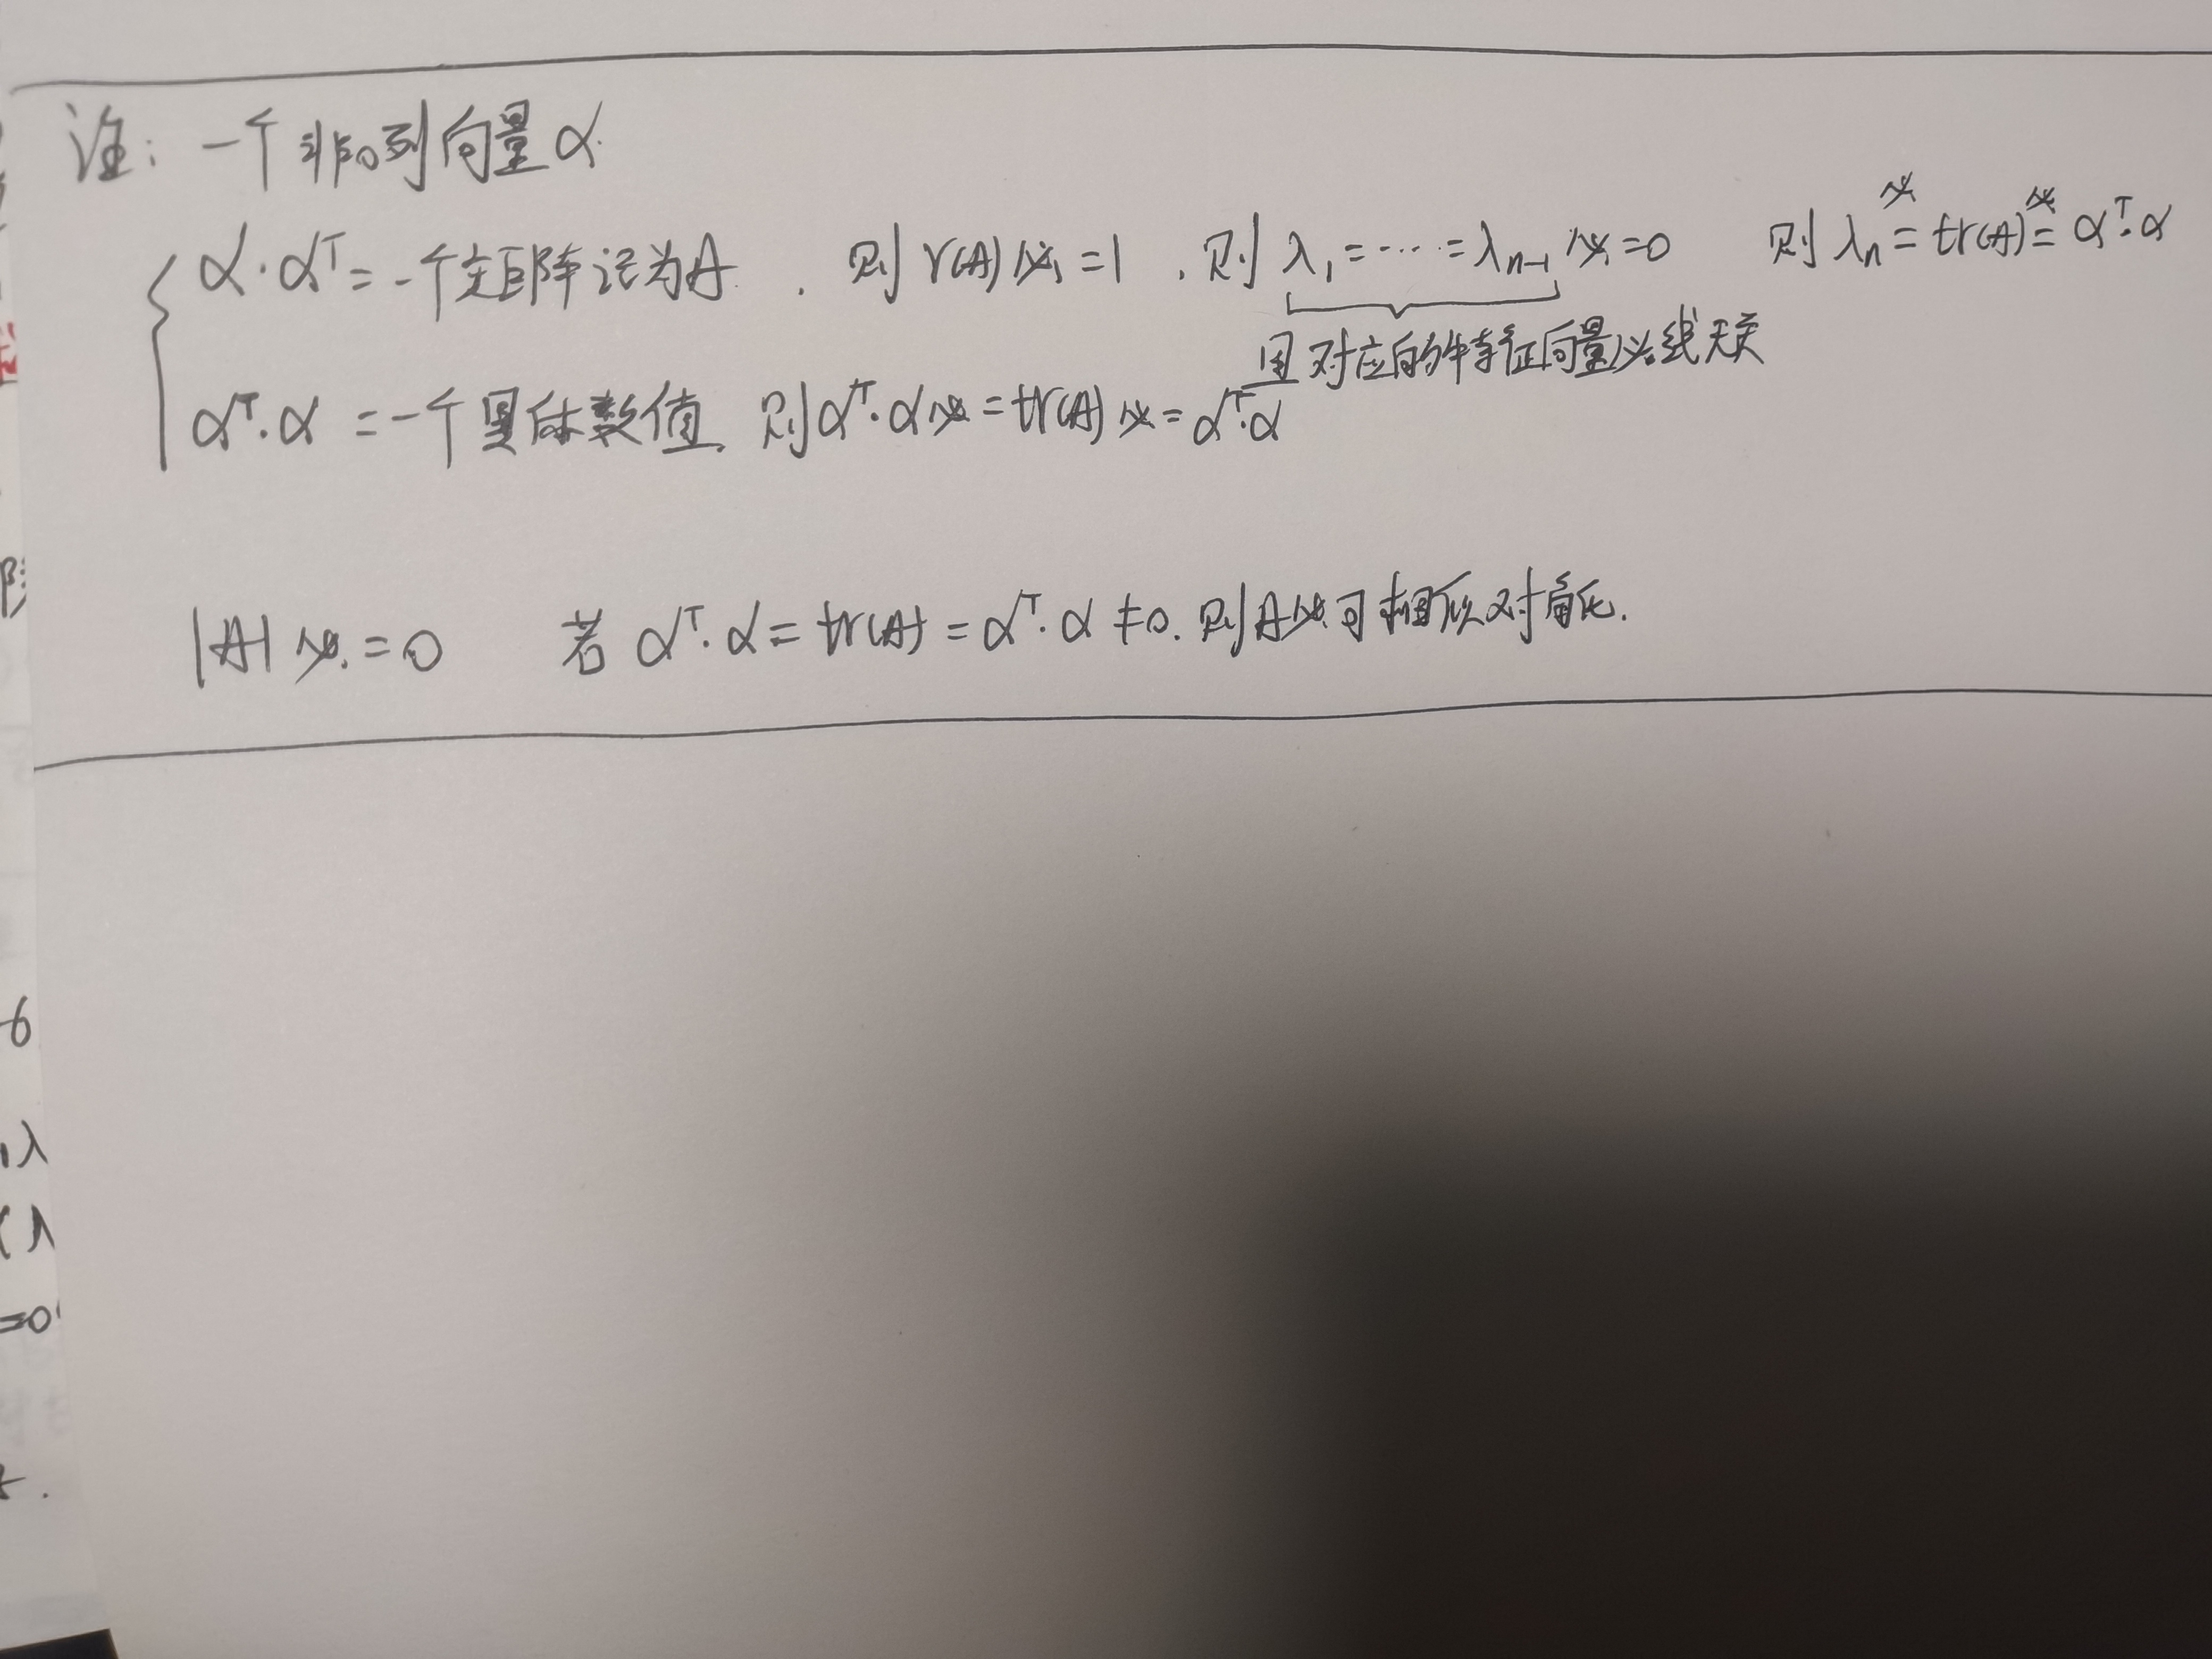 注：一个非0列向量α.
α·αᵀ=一个矩阵记为A. 则r(A)必=1. 则λ₁=…=λₙ₋₁必=0 则λₙ必=tr(A)必=αᵀ·α
且对应的特征向量必线无关
αᵀ·α=一个具体数值. 则αᵀ·α必=tr(A)必=αᵀ·α
|A|必.=0 若αᵀ·α=tr(A)=αᵀ·α≠0. 则A必可相似对角化.
-6
λ
(λ
=0